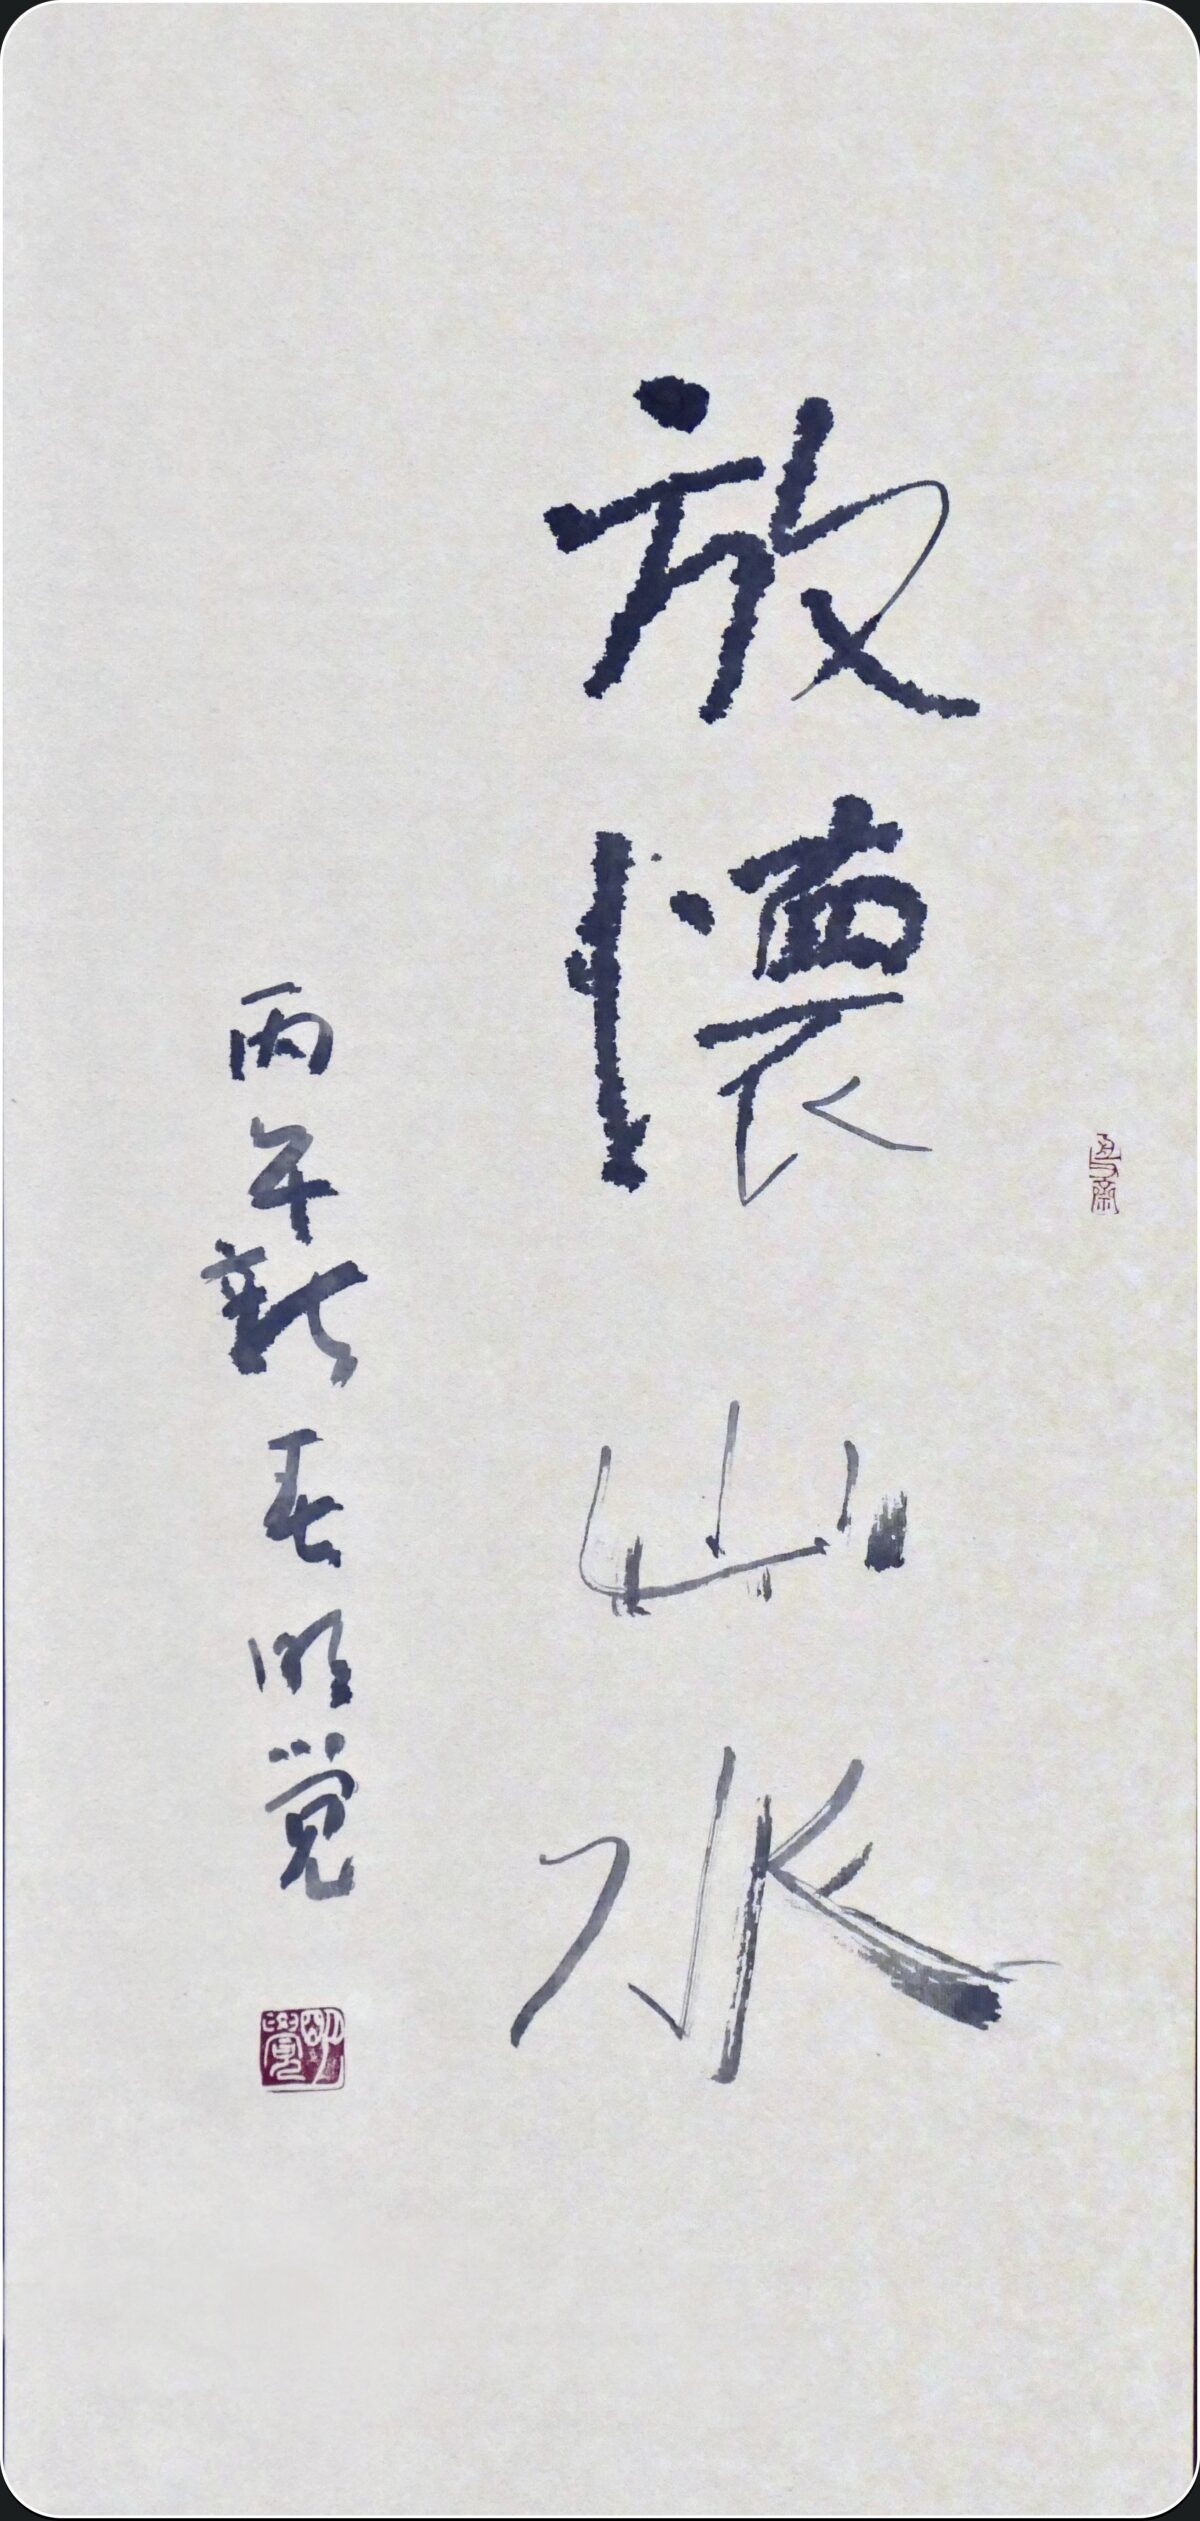 放懷山水
丙午新春明觉
明覺